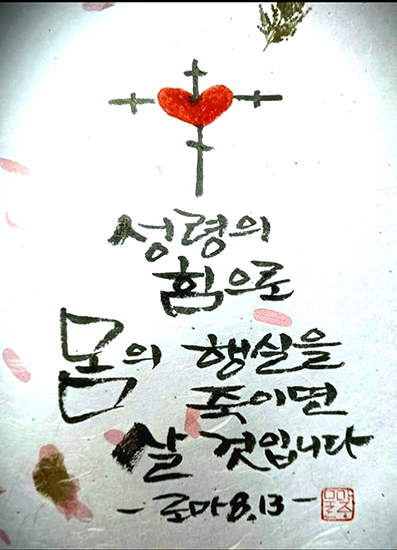 성령의
힘으로
몸의 행실을
죽이면
살 것입니다
- 로마 8,13 -